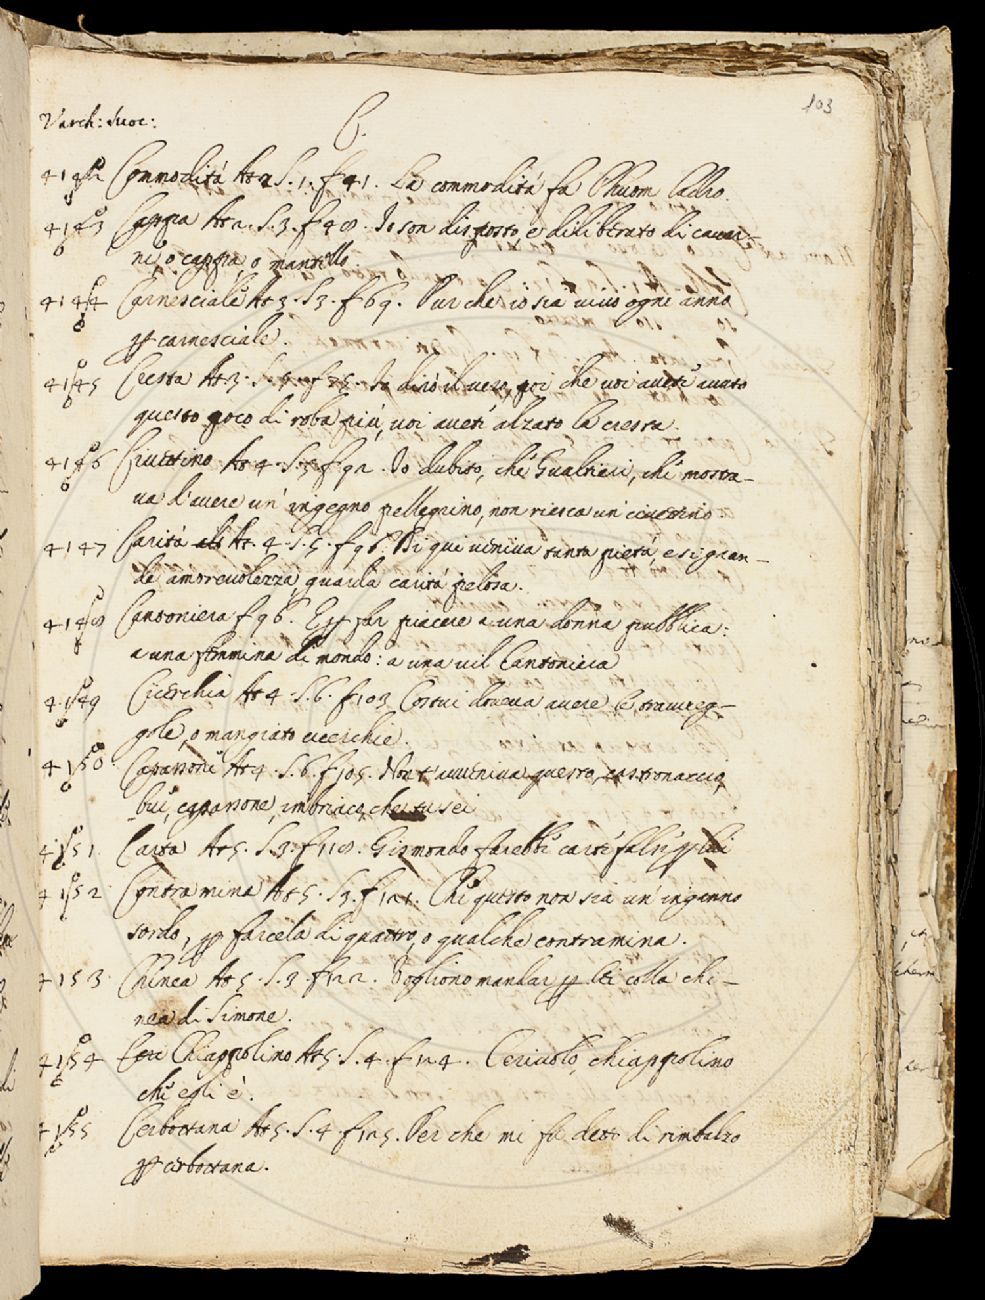 103
Varch: Suoc:
C.
4142 Commodità At 2 S. 1. f 41. La commodità fa l'huom ladro.
4143 Cappia At 2. S. 3. f 48. Io son disposto, e diliberato di cavar-
ne, o cappia, o mantello.
4144 Carnesciale At 3. S 3. f 69. Pur che io sia vivo ogni anno
è carnesciale.
4145 Cresta At 3. S. 5. f 75. Io dirò il vero, poi che voi avete avuto
questo poco di roba più, voi avete alzato la cresta.
4146 Civettino At 4. S. 5 f 92. Io dubito, che Gualtieri, che mostra-
va d'avere un' ingegno pellegrino, non riesca un' civettino
4147 Carità At. 4. S. 5. f 96. Di qui veniva tanta pietà, e sì gran-
de amorevolezza, guarda carità pelosa.
4148 Cantoniera f 96. E per far piacere a una donna pubblica:
a una femmina di mondo: a una vil Cantoniera
4149 Cicerchia At 4. S. 6. f 103 Costui doveva avere le traveg-
gole, o mangiato cicerchie.
4150 Caparrone At 4. S. 6. f 105. Non t'avveniva questo, castronaccio,
bue, caparrone, imbriaco, che tu sei
4151 Carta At 5. S. 3. f 118. Gismondo farebbe carte false per lui
4152 Contramina At 5. S. 3. f 121. Che questo non sia un' inganno
sordo, per farcela di quattro, o qualche contramina.
4153 Chinea At 5. S. 3. f 122. Vogliono mandar per lei colla chi-
nea di Simone.
4154 Chiappolino At 5. S. 4. f 124. Cerivolo, chiappolino
che egli è.
4155 Cerbottana At 5. S. 4. f 125. Per che mi fu detto di rimbalzo
per cerbottana.